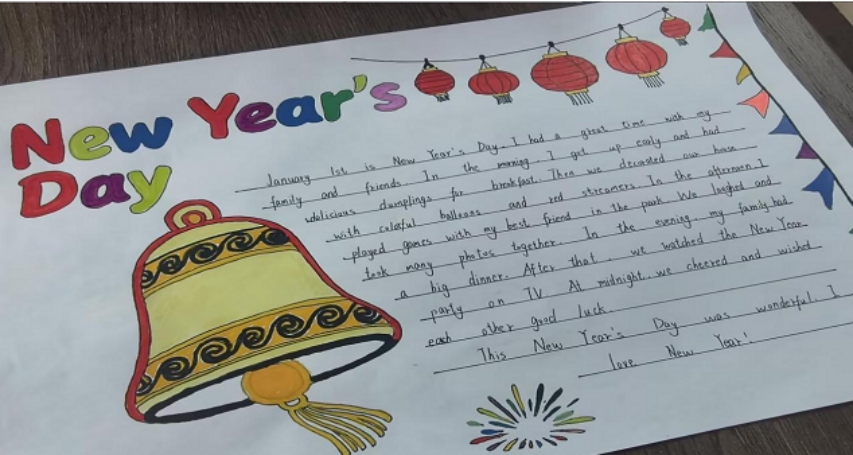 New Year's
Day
January 1st is New Year's Day. I had a great time with my
family and friends. In the morning, I got up early and had
delicious dumplings for breakfast. Then we decorated our house
with colorful balloons and red streamers. In the afternoon I
played games with my best friend in the park. We laughed and
took many photos together. In the evening, my family had
a big dinner. After that, we watched the New Year
party on TV. At midnight, we cheered and wished
each other good luck
This New Year's Day was wonderful. I
love New Year!